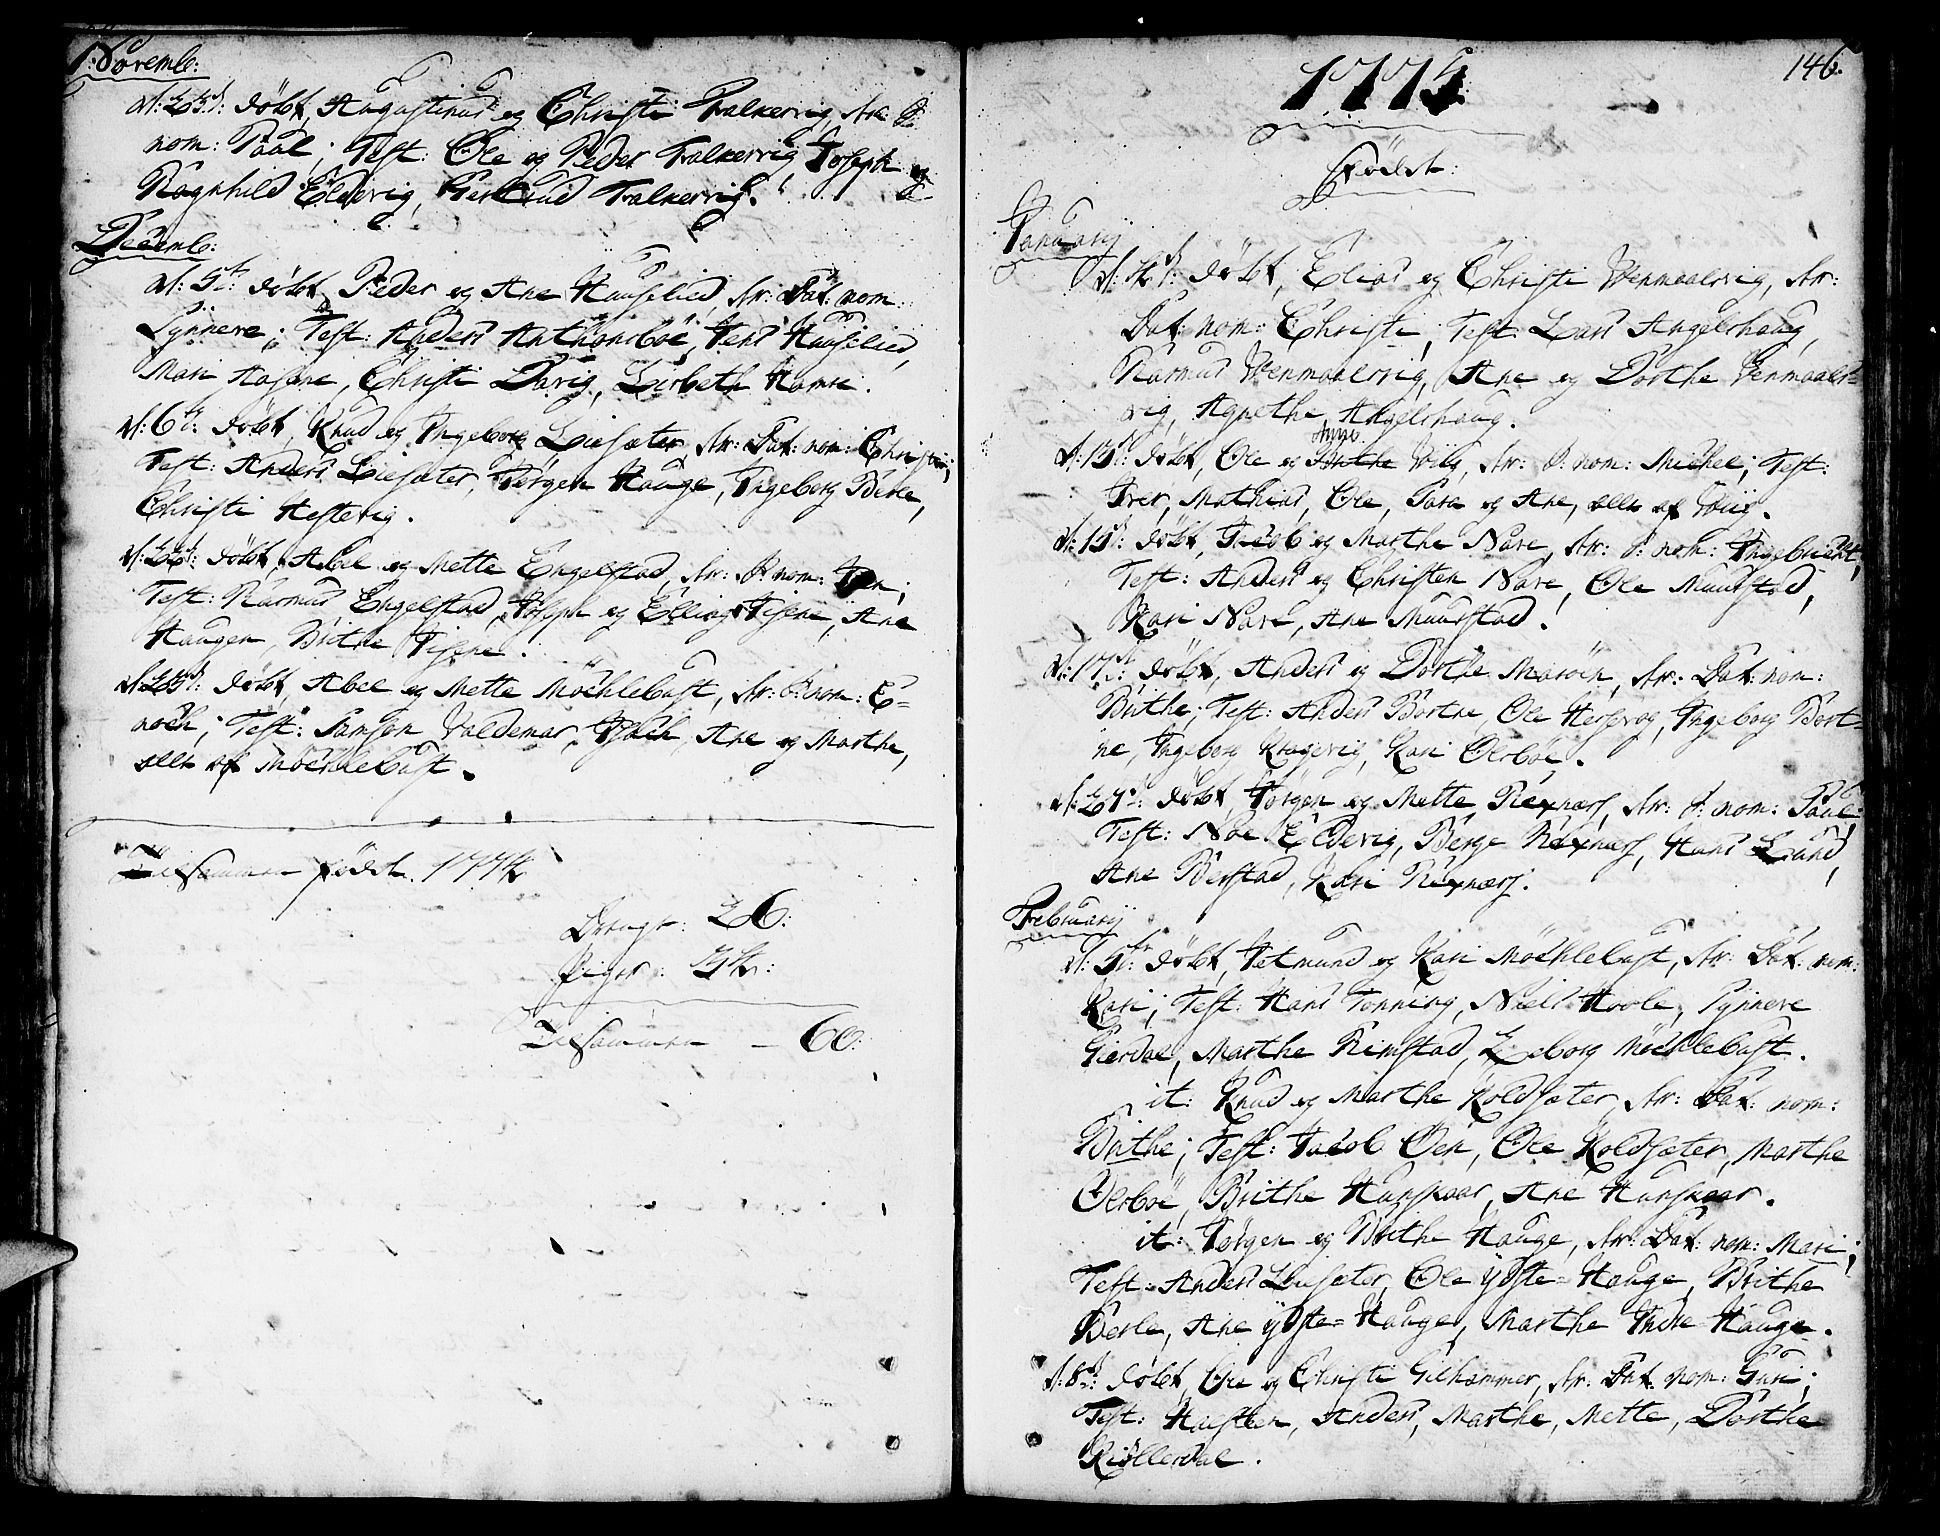 Novemb:
d: 23d: døbt, Augustinus og Christi Falkevig, Ar: P:
nom: Paul; Test: Ole og Peder Falkevig, Joseph og
Ragnhild Eldevig, Gertrud Falkevig.
Decemb:
d: 5te: døbt, Peder og Ane Hauselied, Ar: Dat: nom:
Synneve; Test: Anders Anthonsboe, Jens Hauselied,
Mari Aasene, Christi Davig, Lisbeth Hamre.
d: 6te: døbt, Knud og Ingeborg Liesæter, Ar: Dat: nom: Christi;
Test: Anders Liesæter, Jørgen Hauge, Ingeborg Berle,
Christi Hestevig.
d: 26d: døbt, Abel og Mette Engelstad, Ar: P: nom: Jen;
Test: Rasmus Engelstad, Joseph og Elling Tisene, Ane
Haugen, Brithe Tisene.
d: 23d: døbt, Abel og Mette Möchlebust, Ar: P: nom: E=
noch; Test: Samson, Valdemar, Isach, Ane og Marthe,
alle af Möchlebust.
Tilsammen fødde 1774
Drenge: 26:
Piger: 34:
Tilsammen – 60:
146.
1775
Fødde:
January
d: 4d: døbt, Elias og Christi Venmaalsvig, Ar:
Dat: nom: Christi; Test: Lars Angelshaug,
Rasmus Venmaalsvig, Ane og Dorthe Venmaals=
vig, Agnethe Angelshaug.
Anne
d: 15d: døbt, Ole og Brithe Viig, Ar: P: nom: Michel; Test:
Iver, Mathias, Ole, Sara og Ane, alle af Viig.
d: 15d: døbt, Jacob og Marthe Nave, Ar: P: nom: Ingebricht,
Test: Anders og Christen Nave, Ole Muustad,
Kari Nave, Ane Muurstad.
d: 17d: døbt, Anders og Dorthe Maröen, Ar: Dat: nom:
Brithe; Test: Anders Bortne, Ole Hersvog, Ingeborg Bort=
ne, Ingeborg Kragevig, Kari Olsboe.
d: 29d: døbt, Jørgen og Mette Rexnæss, Ar: P: nom: Paul,
Test: Noe Eldevig, Berge Rexnæss, Hans Lund,
Ane Berstad, Kari Rexnæss.
February
d: 5te: døbt, Jetmund og Kari Möchlebust, Ar: Dat: nom:
Kari; Test: Hans Tonning, Niels Hoole, Synneve
Gierdal, Marthe Rimstad, Leborg Möchlebust.
it: Knud og Marthe Koldsæter, Ar: Dat: nom:
Brithe; Test: Jacob Öen, Ole Koldsæter, Marthe
Olsboe, Brithe Hunskaar, Ane Hunskaar.
it: Jørgen og Brithe Hauge, Ar: Dat: nom: Mari;
Test: Anders Liesæter, Ole Ytste=Hauge, Brithe
Berle, Ane Ytste=Hauge, Marthe Indre Hauge.
d: 8d: døbt, Ole og Christi Gilhammer, Ar: Dat: nom: Guri;
Test: Anders, Marthe, Mette, Dorthe